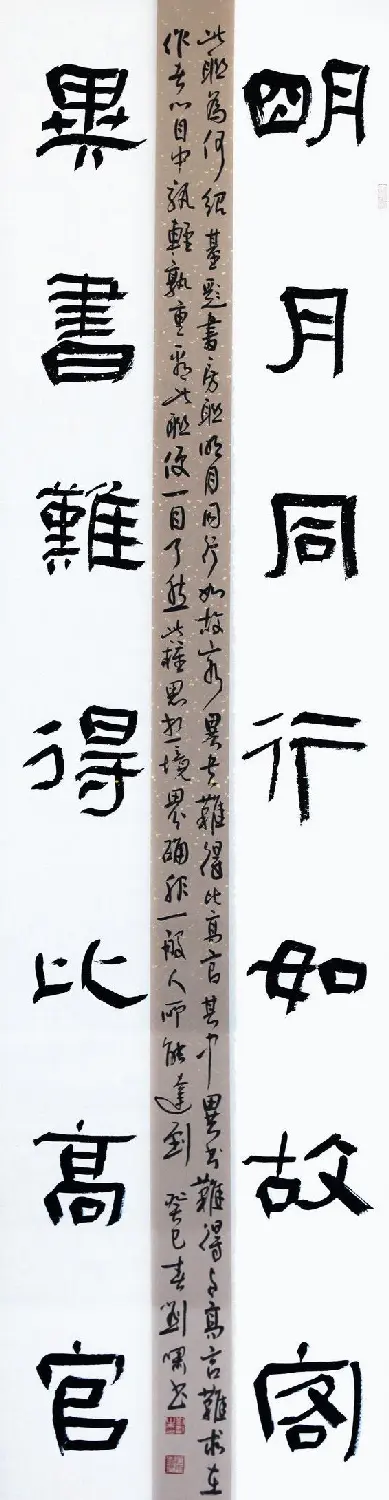 明月同行如故客
異書難得比高官
此联為何绍基题書房联明月同行如故客異书難得比高官其中異书難得与高官難求在
作者心目中孰輕孰重看此联便一目了然此種思想境界确非一般人所能達到 癸巳春劉啸书